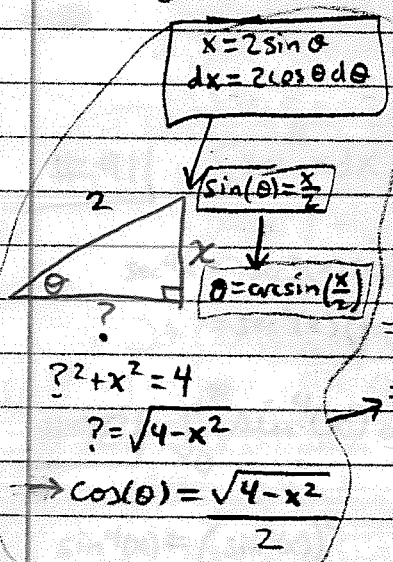 x = 2sin θ
dx = 2cos θ dθ
sin(θ) = x/2
2
x
θ
θ = arcsin(x/2)
?
?² + x² = 4
? = √(4-x²)
→ cos(θ) = √(4-x²)/2